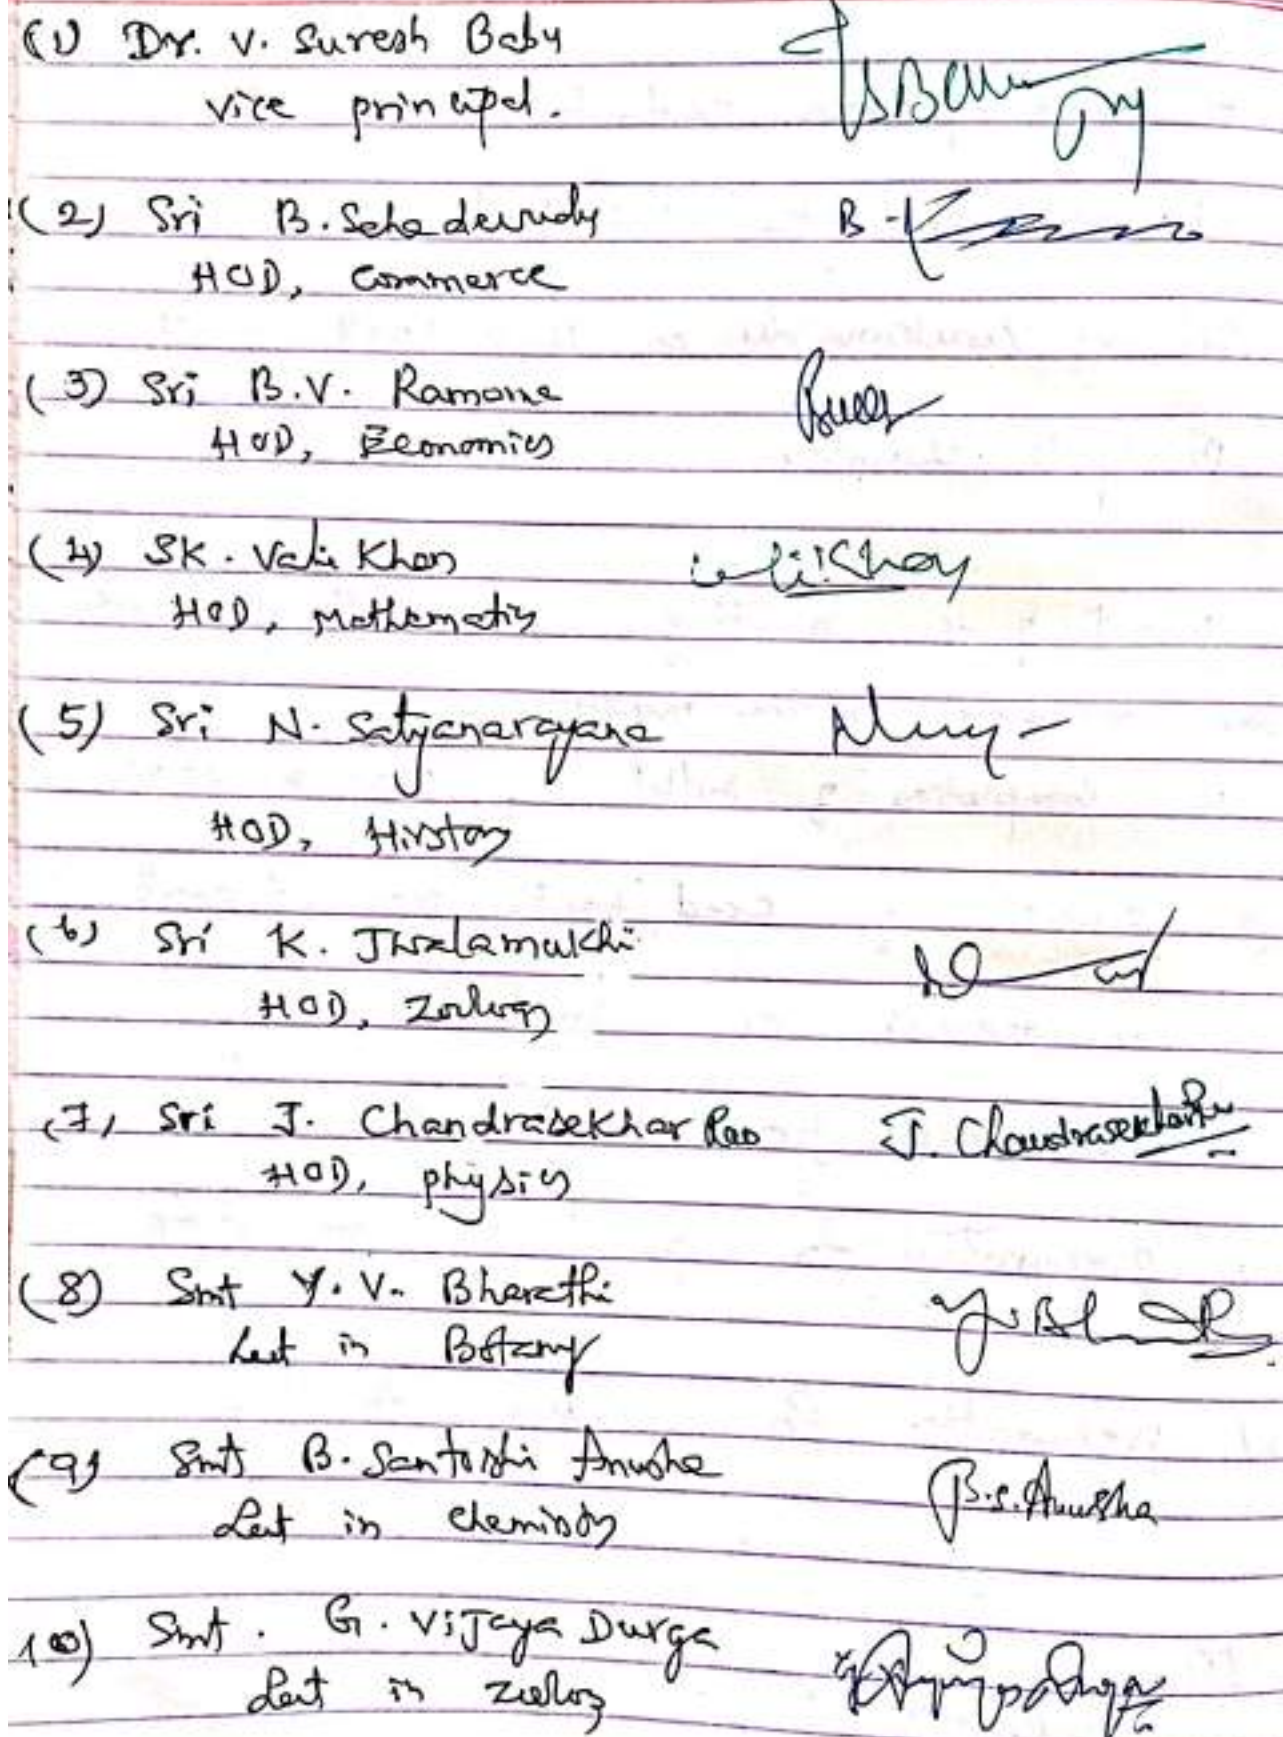 (1) Dr. V. Suresh Babu
vice principal.
(2) Sri B. Sahadevudu B.
HOD, Commerce
(3) Sri B.V. Ramana
HOD, Economics
(4) SK. Vali Khan
HOD, Mathematics
(5) Sri N. Satyanarayana
HOD, History
(6) Sri K. Jwalamukhi
HOD, Zoology
(7) Sri J. Chandrasekhar Rao J. Chandrasekhar Rao
HOD, physics
(8) Smt Y.V. Bharathi
Lect in Botany
(9) Smt B. Santoshi Anusha B.S. Anusha
Lect in chemistry
10) Smt. G. Vijaya Durga
Lect in Zoology